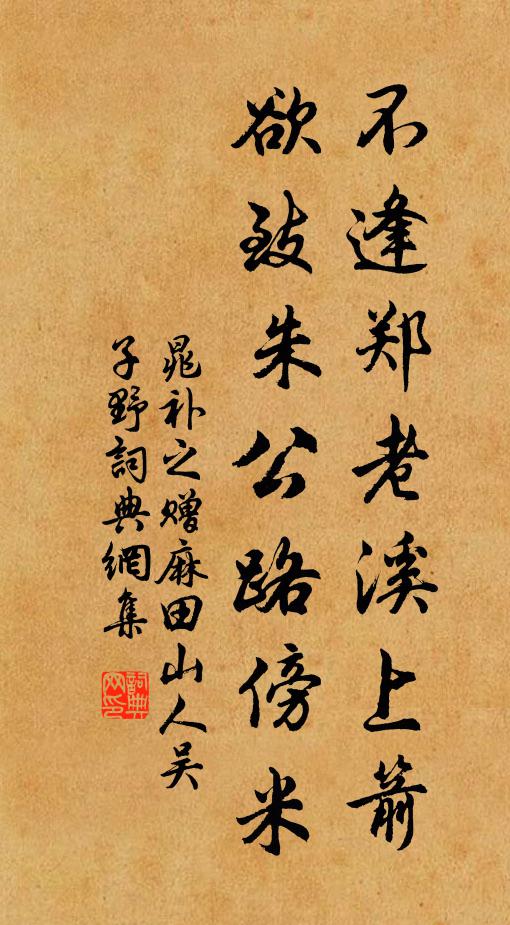 不逢郑老溪上箭
欲致朱公路傍米
晁补之赠麻田山人吴
子野詞典網集
詞典网印